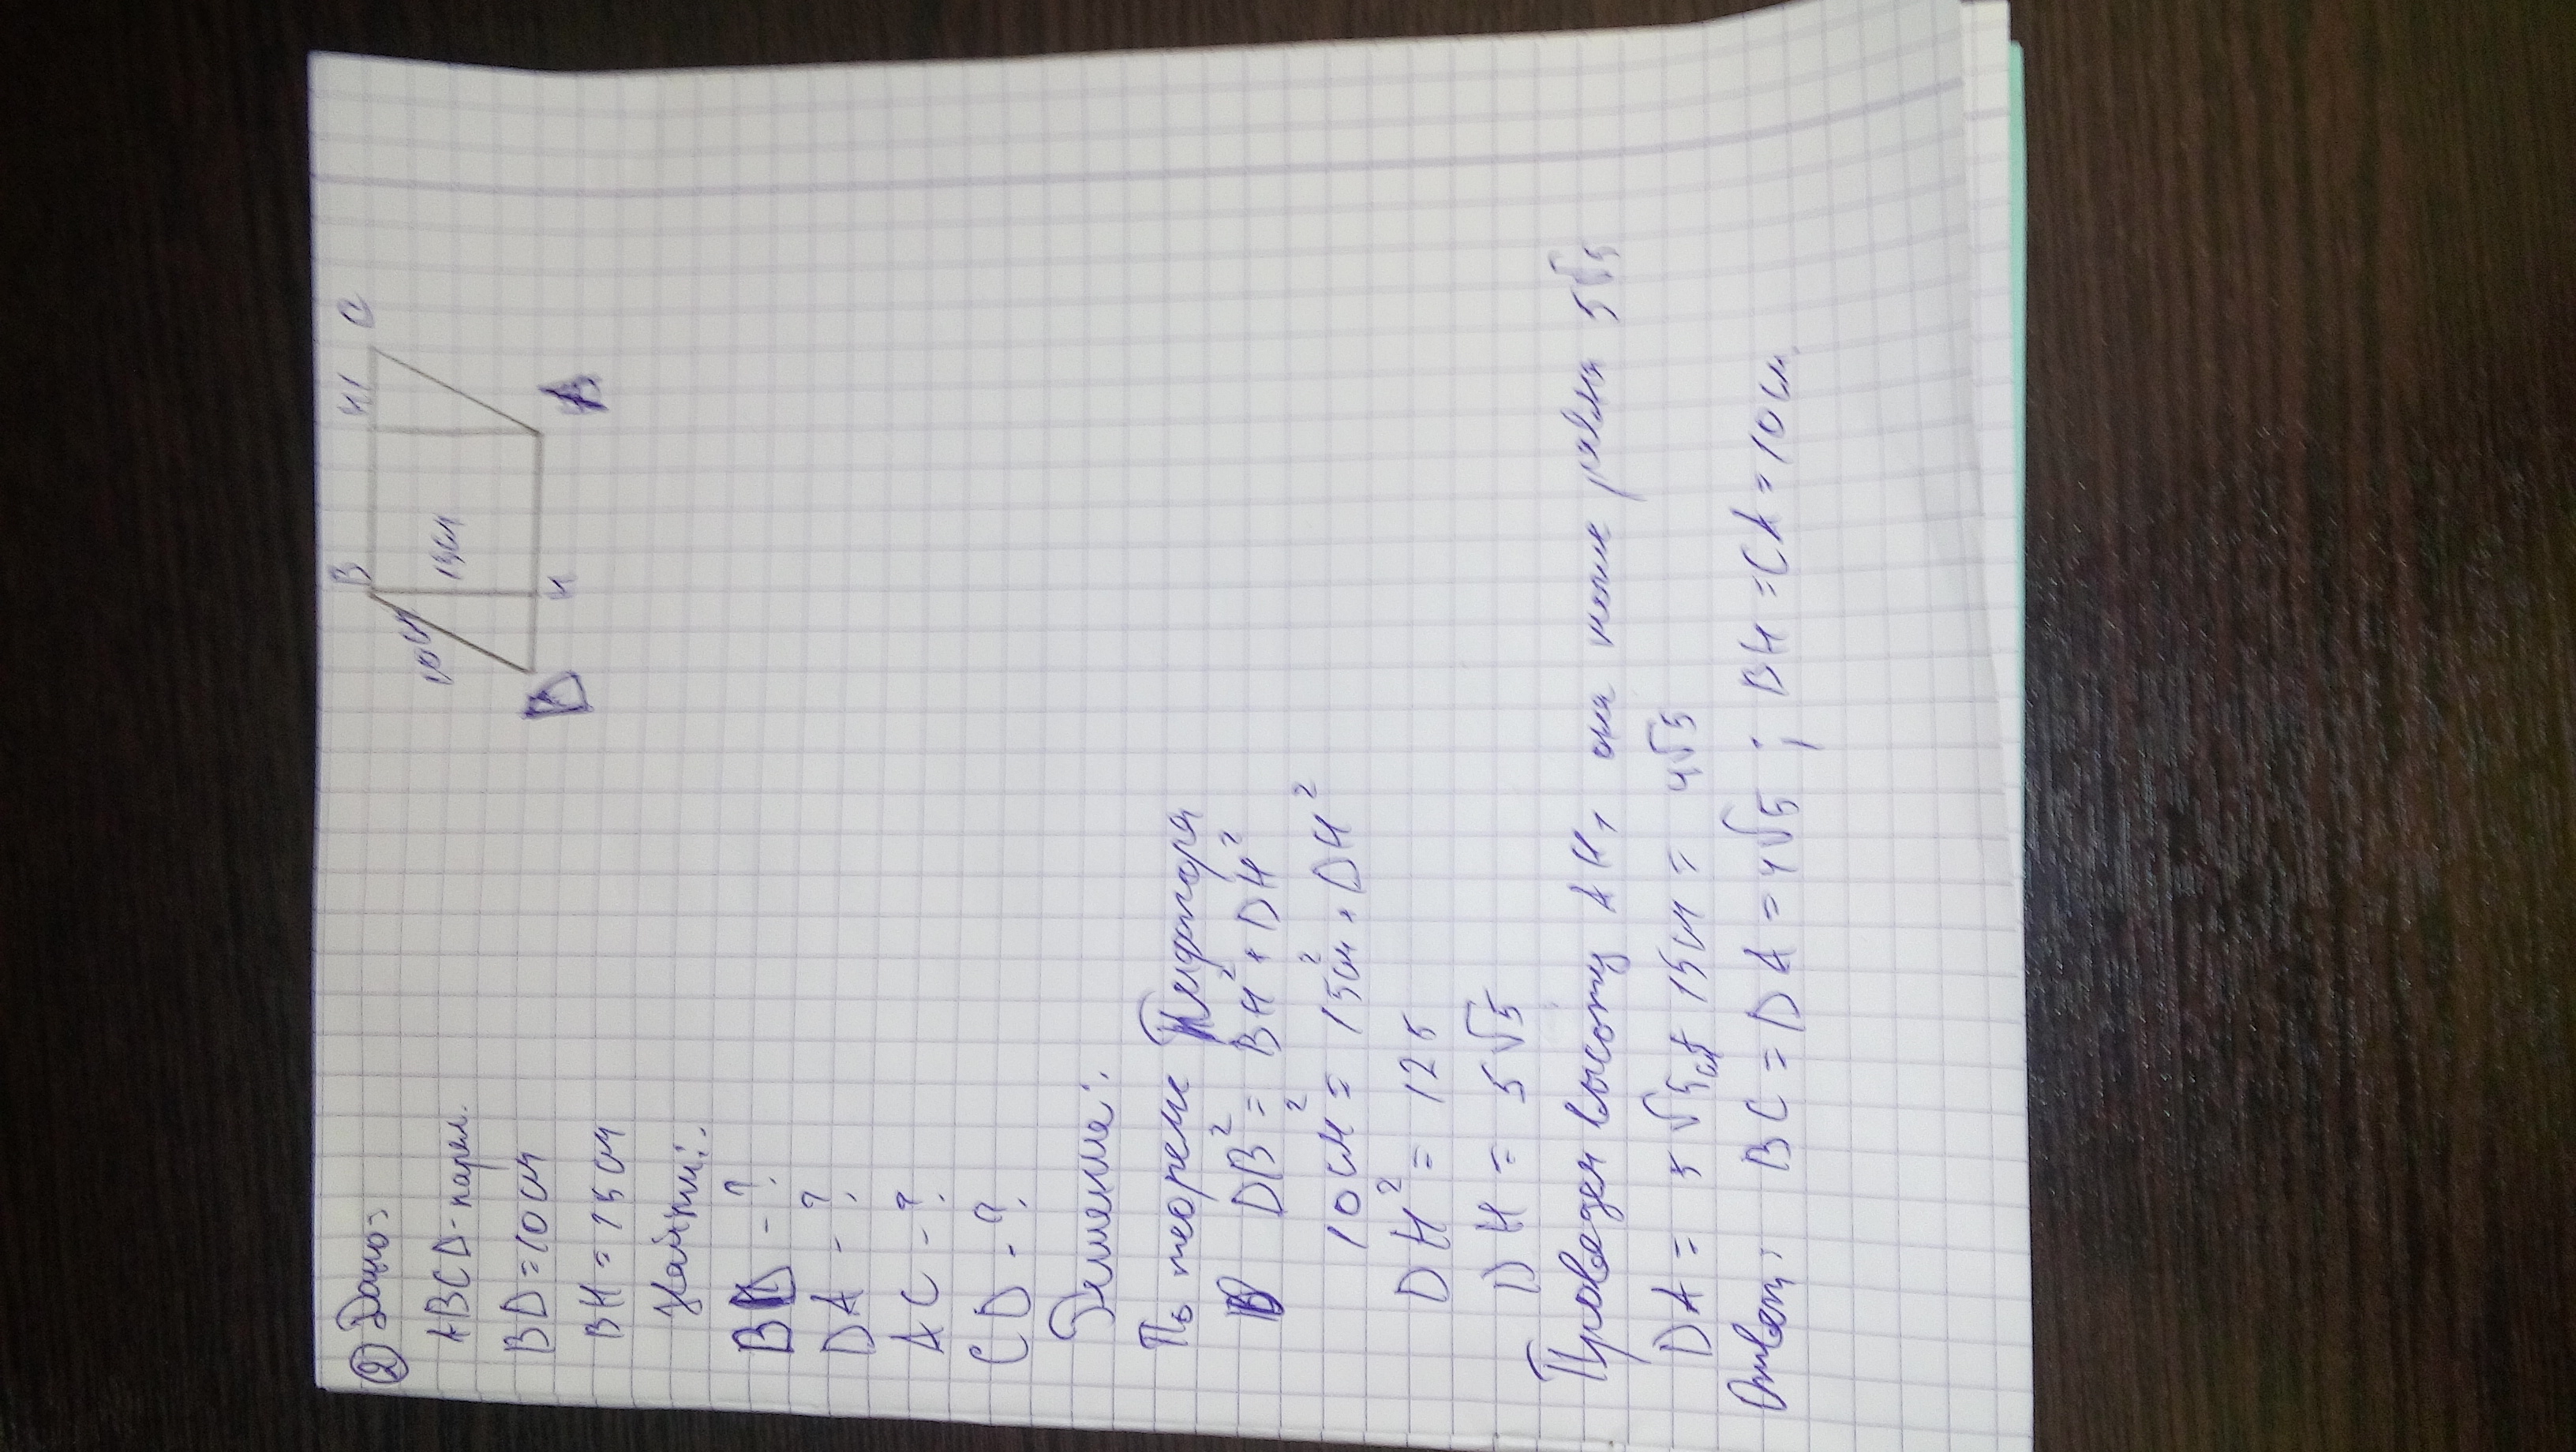 ② Дано:
ABCD - парал.
BD = 10 см
BH = 15 см
Найти:
BD - ?
DA - ?
AC - ?
CD - ?
B
H1
C
10 см
15см
D
H
A
Решение:
По теореме Пифагора
DB² = BH² + DH²
10 см² = 15см² + DH²
DH² = 125
DH = 5√5
Проведем высоту AH₁ она также равна 5√5
DA = 5√5см 15см = 4√5
Ответ: BC = DA = 4√5 ; BH = CA = 10 см